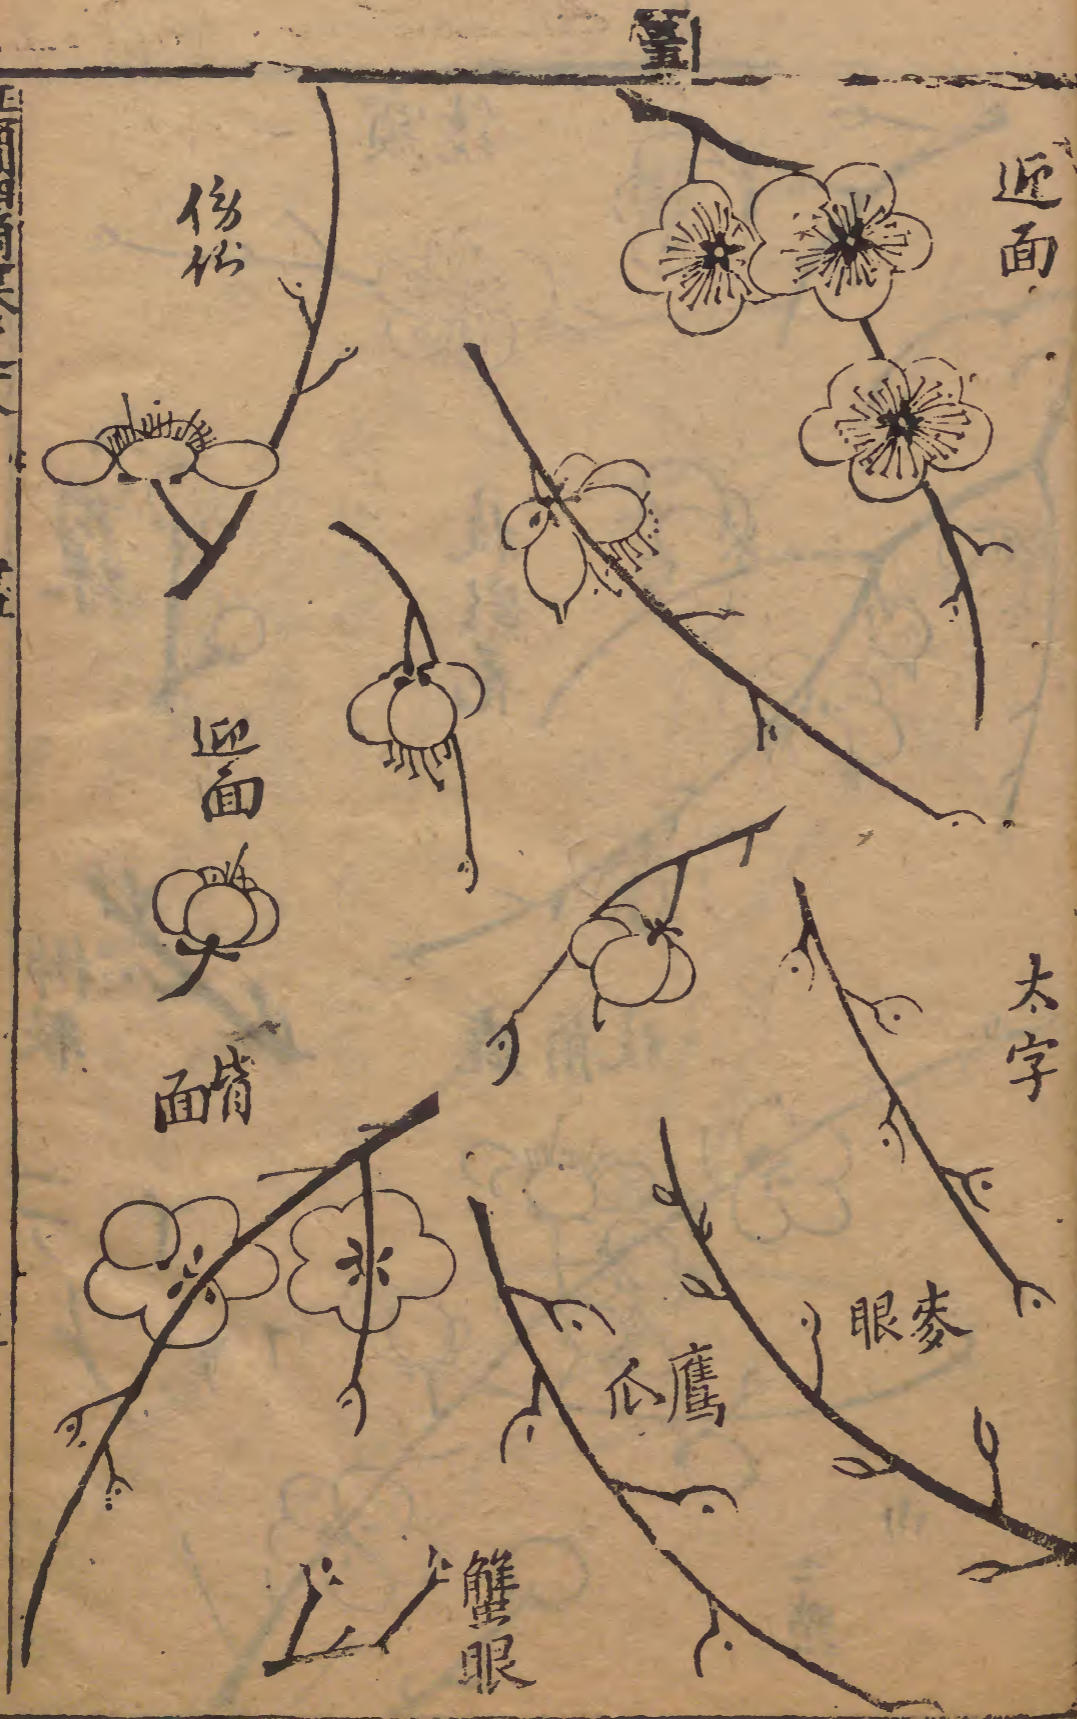 迎面
太字
麥眼
鷹爪
蟹眼
傍側
迎面
背面